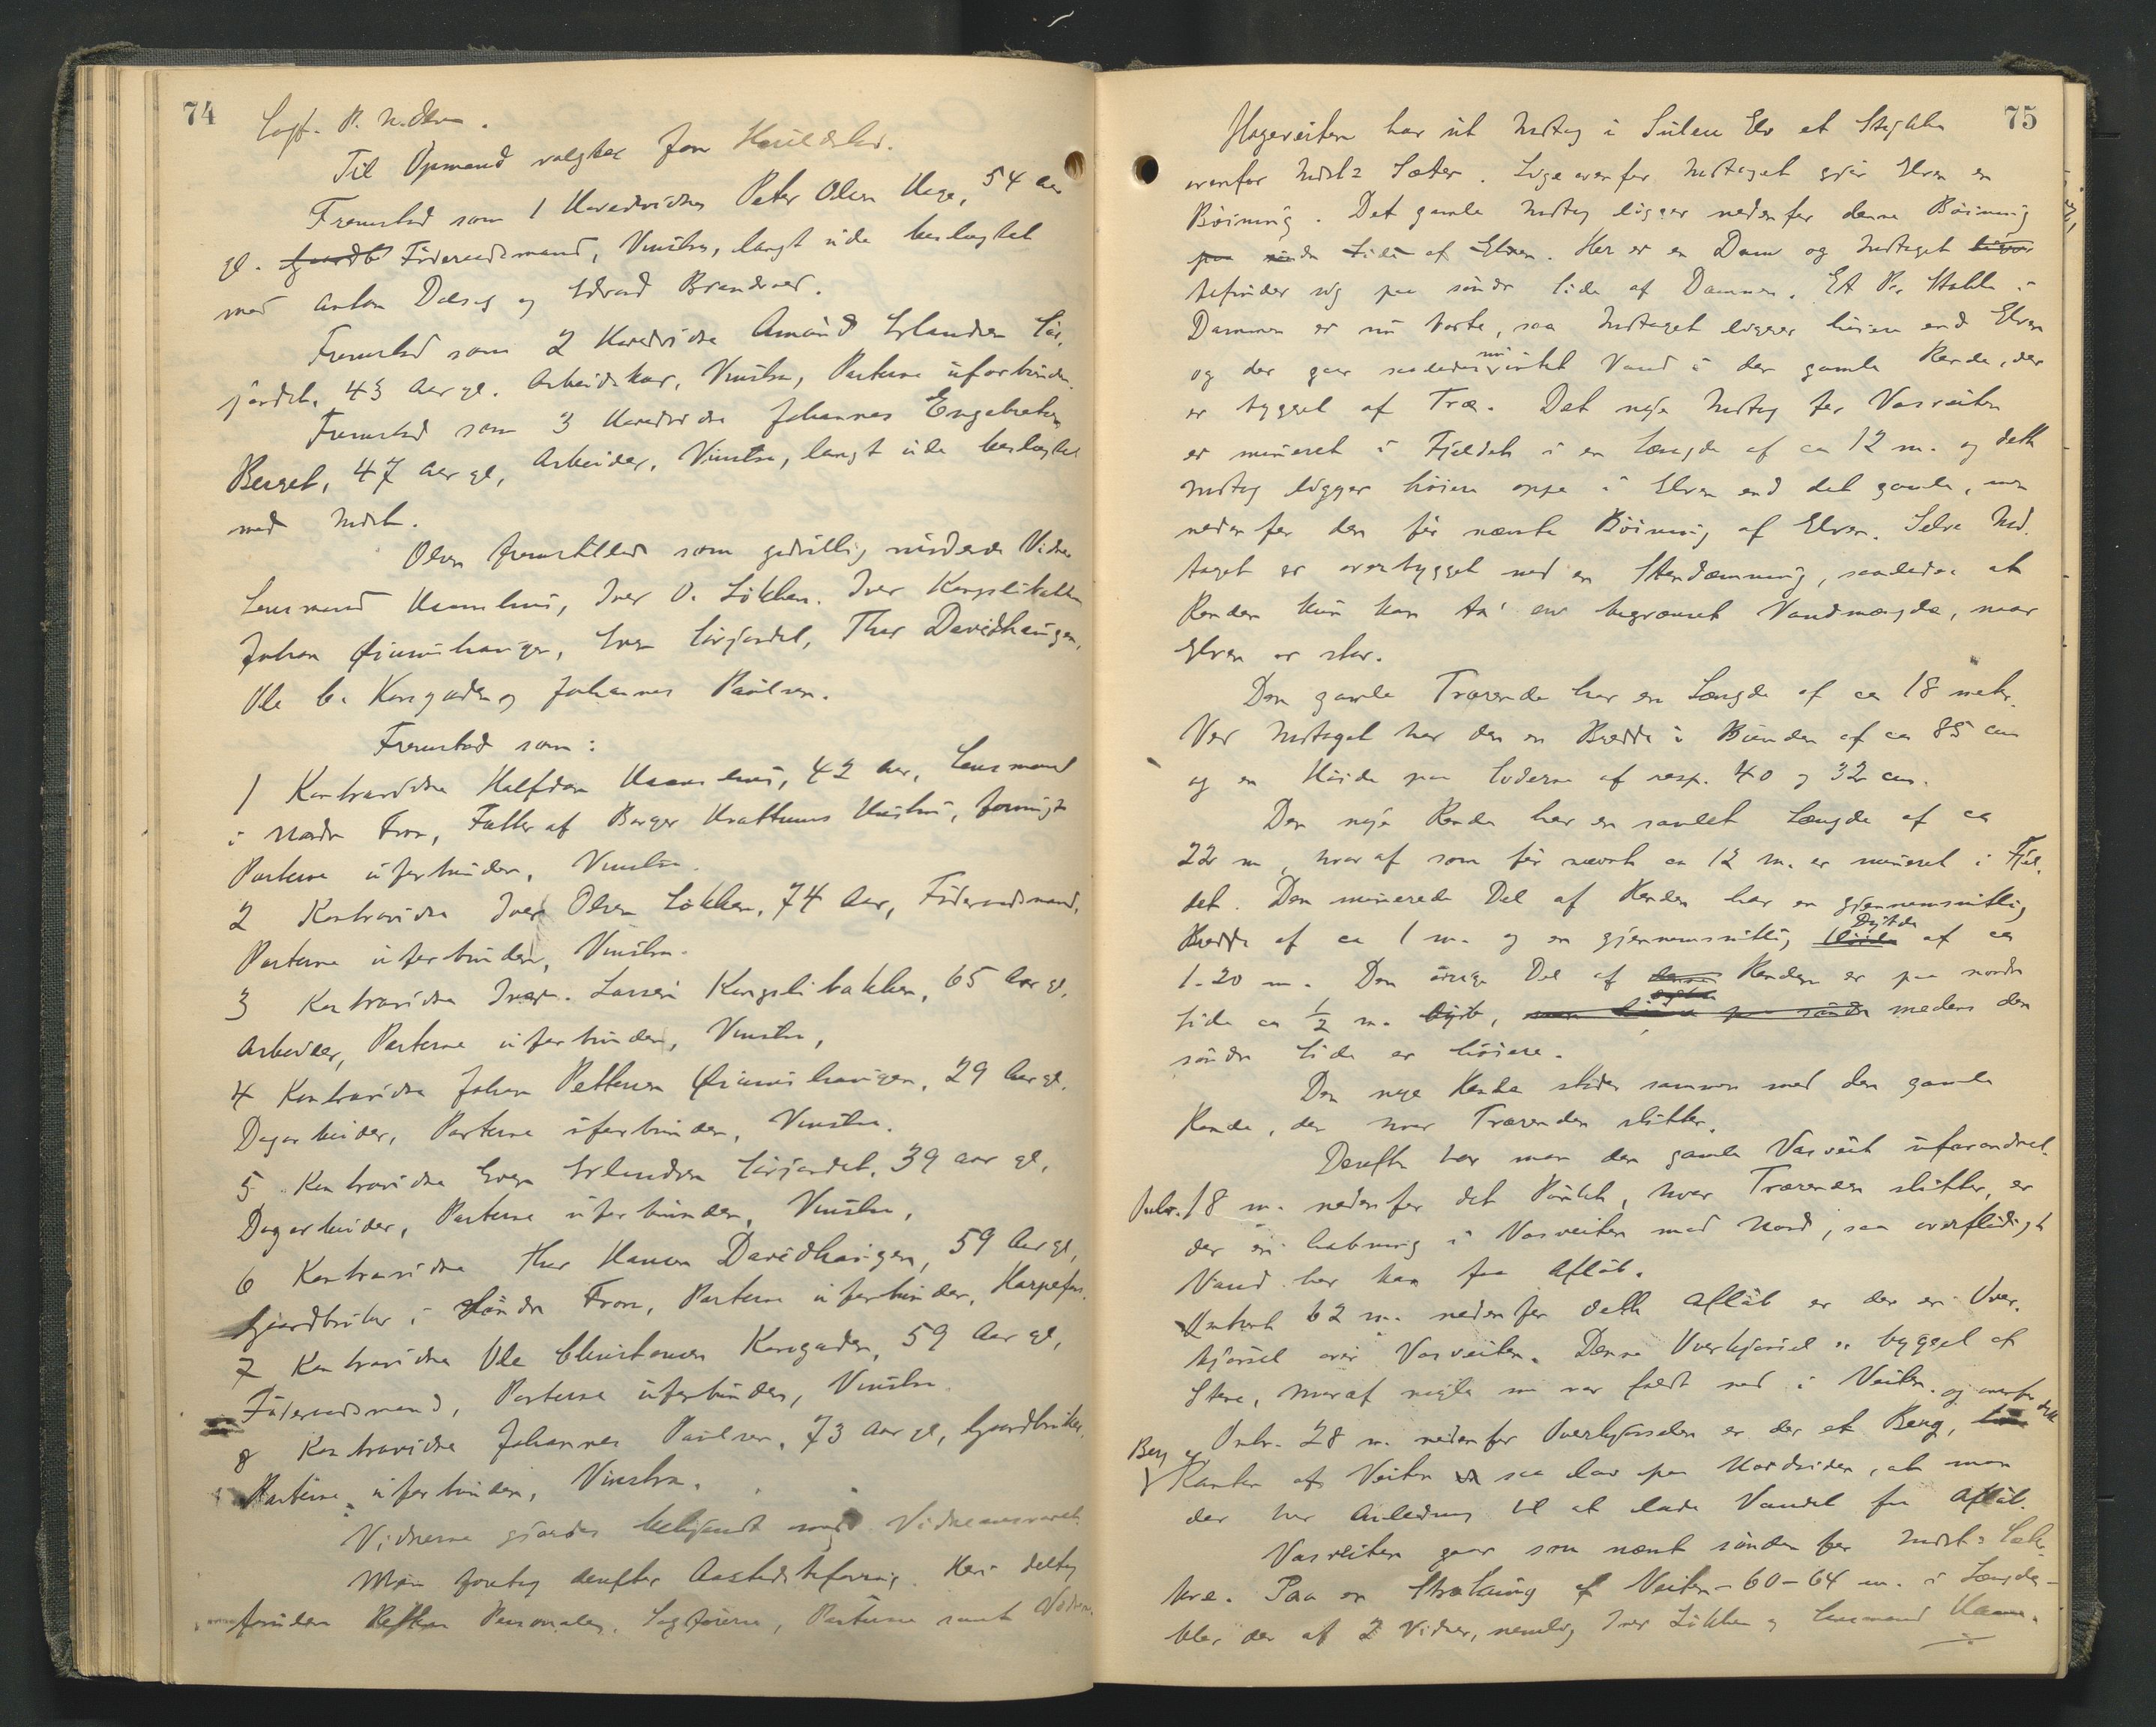 74
Sagf. P. N. Olsen.
Til Opmand valgtes Jon Hauldslid.
Fremstod som 1 Hovedvidne Peter Olsen Hage, 54 Aar
gl. Föderaadsmand, Vinstra, langt ude beslegtet
med Anton Dalseg og Edvard Brandvoed.
Fremstod som 2 Hovedvidne Amund Erlandsen Sör-
jordet, 43 Aar gl. Arbeidskar, Vinstra, Parterne uforbunden.
Fremstod som 3 Hovedvidne Johannes Engebretsen
Berget, 47 Aar gl, Arbeider, Vinstra, langt ude beslegtet
med Indst.
Olsen fremstillede som godvillig mödende Vidner
Lensmand Kaurhus, Iver O. Lökken, Iver Kongslibakken
Johan Öiumshaugen, Sven Sörjordet, Thor Davidhaugen,
Ole C. Kongaden og Johannes Paulsen.
Fremstod som:
1 Kontravidne Halfdan 42 Aar, Lensmand
i Nordre Fron, Fætter af Borger Hustru, forövrigt
Parterne uforbunden, Vinstra.
2 Kontravidne Iver Olsen Lökken, 74 Aar, Föderaadsmand,
Parterne uforbunden, Vinstra.
3 Kontravidne Iver Larsen Kongslibakken, 65 Aar gl,
Arbeider, Parterne uforbunden, Vinstra,
4 Kontravidne Johan Pettersen Öiumshaugen, 29 Aar gl.
Dagarbeider, Parterne uforbunden, Vinstra.
5 Kontravidne Sven Erlandsen Sörjordet, 39 Aar gl,
Dagarbeider, Parterne uforbunden, Vinstra,
6 Kontravidne Thor Hansen Davidhaugen, 59 Aar gl,
Gjardbruker i Söndre Fron, Parterne uforbunden, Harpefos.
7 Kontravidne Ole Christensen Kongaden, 59 Aar gl,
Föderaadsmand, Parterne uforbunden, Vinstra.
8 Kontravidne Johannes Paulsen, 73 Aar gl, Gjardbruker,
Parterne uforbunden, Vinstra.
Vidnerne gjordes bekjendt med Vidneansvaret.
Man foretog derefter Aastedsbefaring. Heri deltog
foruden Rettens Personale, Sagförerne, Parterne samt Vidnerne.
75
Hageveiten har sit Indtag i Sulen Elv et Stykke
ovenfor Indst.s Sæter. Lige ovenfor Indtaget gjör Elven en
Böining. Det gamle Indtag ligger nedenfor denne Böining
paa söndre Side af Elven. Her er en Dam og Indtaget
befinder sig paa söndre Side af Dammen. Et Par Stokke i
Dammen er nu borte, saa Indtaget ligger höiere end Elven
og der gaar saaledes nu intet Vand i den gamle Rende, der
er bygget af Træ. Det nye Indtag for Vasveiten
er mineret i Fjeldet i en Længde af ca 12 m. og dette
Indtag ligger höiere oppe i Elven end det gamle, men
nedenfor den för nævnte Böining af Elven. Selve Ind-
taget er overbygget med en Stendæmning, saaledes at
Renden kun kan ta' en begrænset Vandmængde, naar
Elven er stor.
Den gamle Trærende har en Længde af ca 18 meter.
Ved Indtaget har den en Bredde i Bunden af ca 85 cm
og en Höide paa Siderne af resp. 40 og 32 cm.
Den nye Rende har en samlet Længde af ca
22 m, hvoraf som för nævnt ca 12 m. er mineret i Fjel-
det. Den minerede Del af Renden har en gjennemsnitlig
Bredde af ca 1 m. og en gjennemsnitlig Dybde af ca
1.20 m. Den övrige Del af Renden er paa nordre
Side ca ½ m. dyb, medens den
söndre Side er höiere.
Den nye Rende stöder sammen med den gamle
Rende, der hvor Trærenden slutter.
Derefter har man den gamle Vasveit uforandret.
Omtr. 18 m. nedenfor det Punkt, hvor Trærenden slutter, er
der en Aabning i Vasveiten mod Nord, saa overflödigt
Vand her kan faa Aflöb.
Omtrent 62 m. nedenfor dette Aflöb er der en Over-
kjörsel over Vasveiten. Denne Overkjörsel er bygget af
Stene, hvoraf nogle nu var faldt ned i Veiten.
Omtr. 28 m. nedenfor Overkjörselen er der et Berg, og ovenfor dette
Berg er Kanten af Veiten saa lav paa Nordsiden, at man
der har Anledning til at lade Vandet faa Aflöb.
Vasveiten gaar som nævnt sönden for Indst.s Sæter-
Paa en Strækning af Veiten - 60-64 m. i Længde -
blev der af 2 Vidner, nemlig Iver Lökken og Lensmand